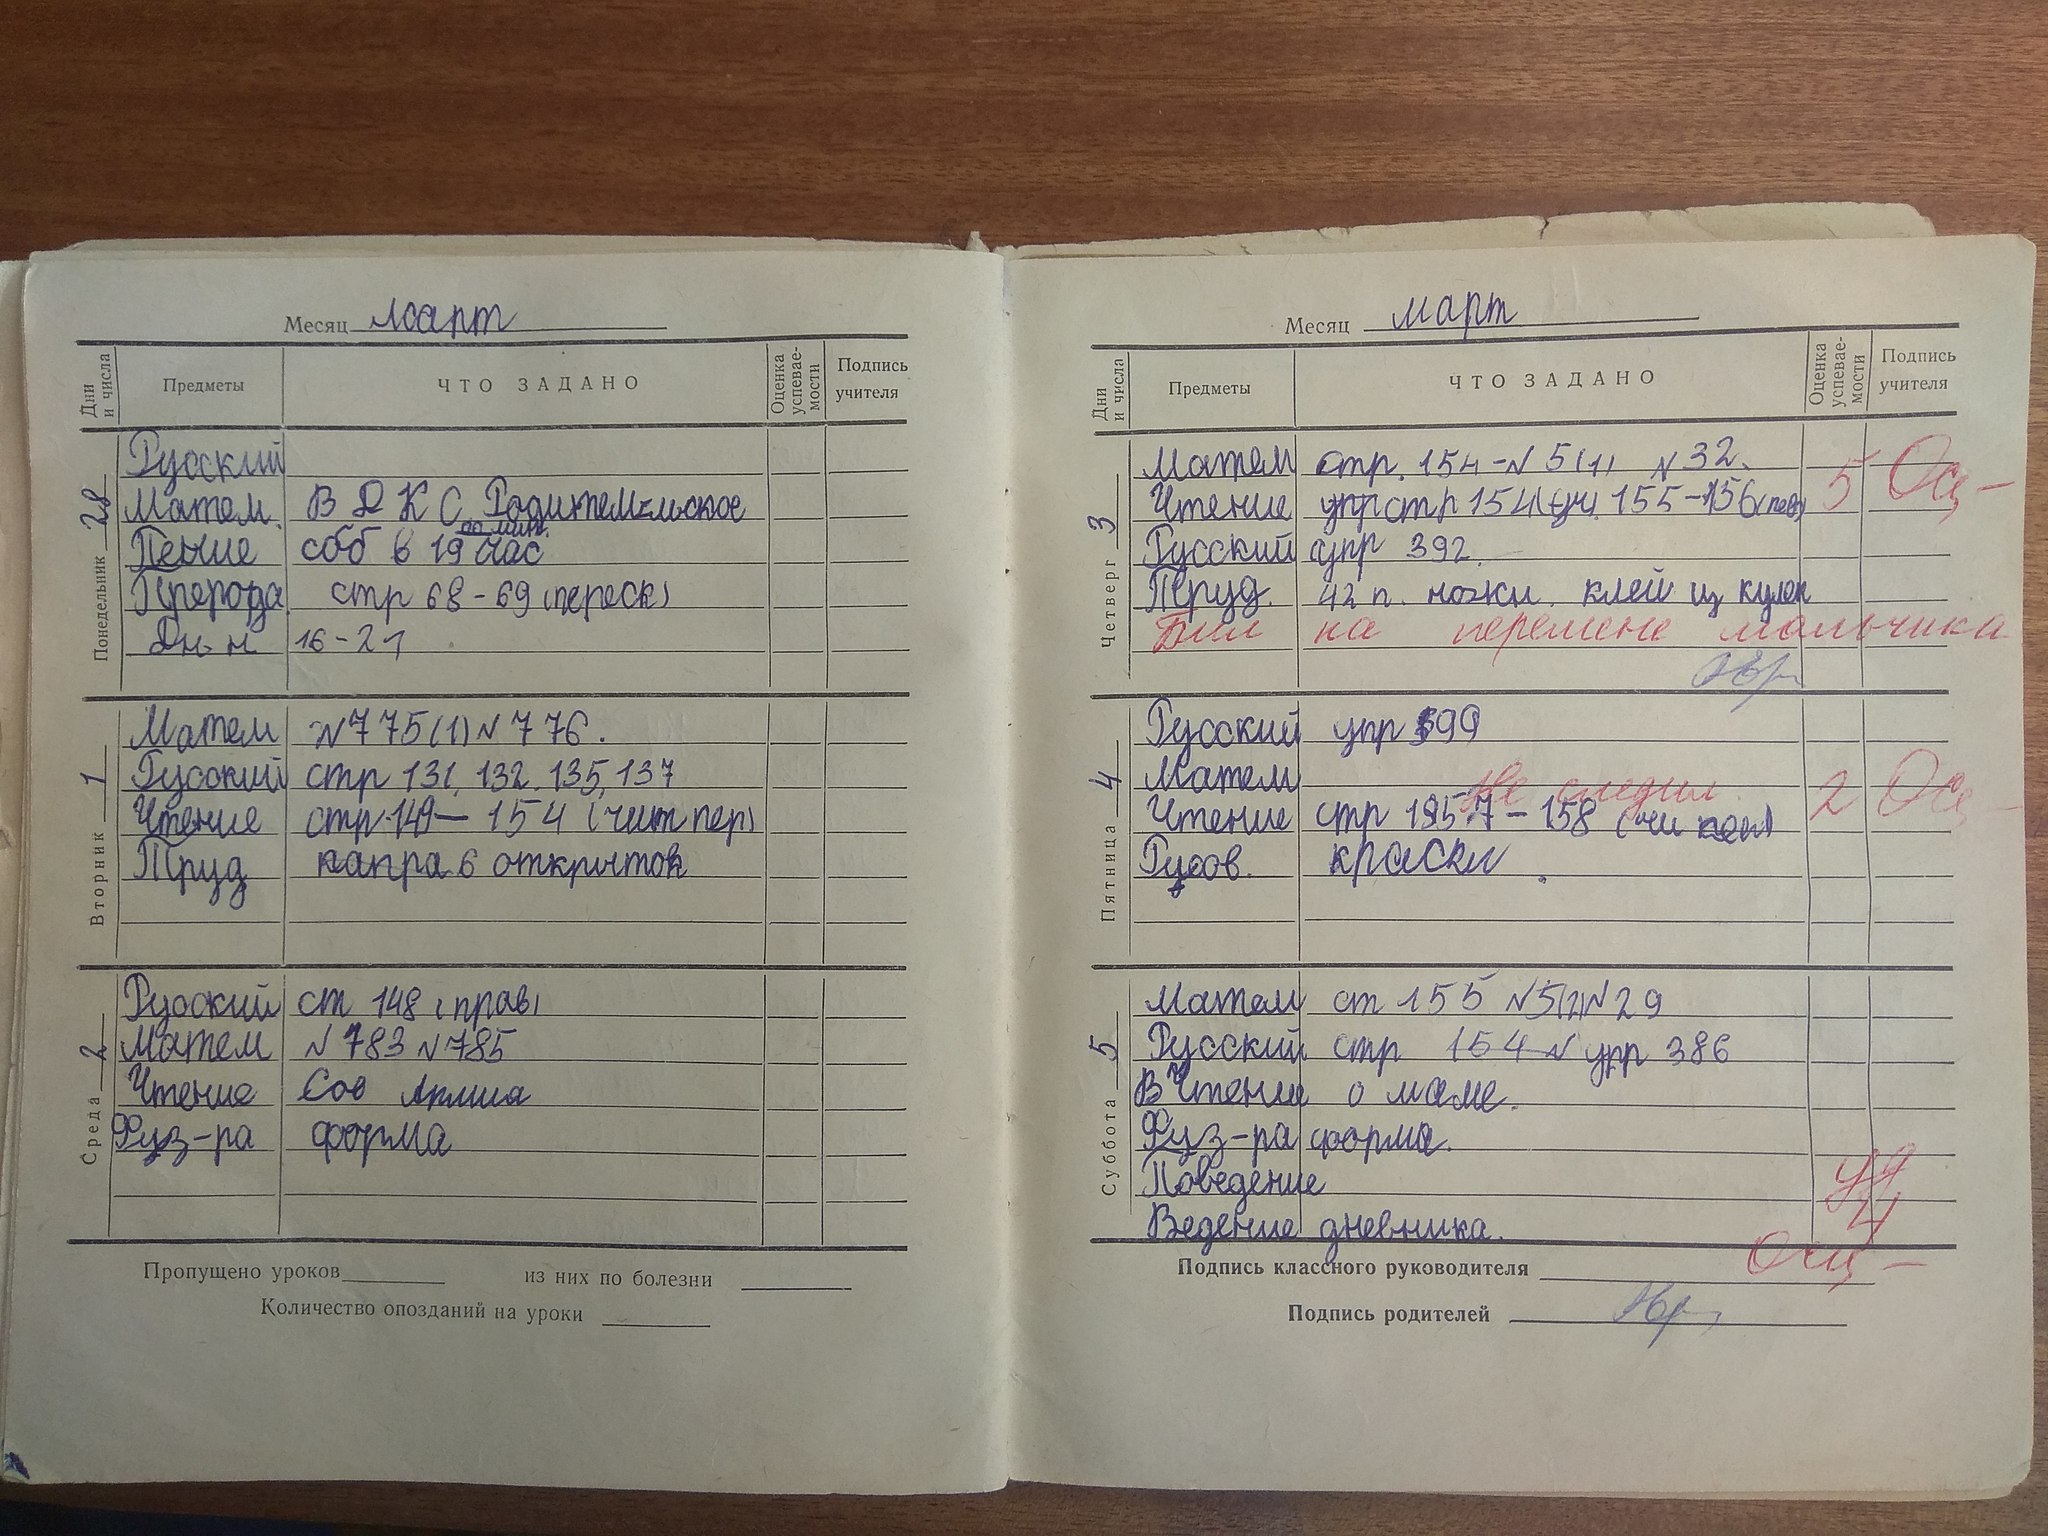 Месяц март
Дни и числа Предметы ЧТО ЗАДАНО Оценка успевае-мости Подпись учителя
Понедельник 28
Русский
Матем. В Д К С Родитем-льское
Пение собб в 19 час
мин.
Прерода. стр 68-69 (переск)
Дн. н 16-21
Вторник 1
Матем N 775(1) N 776.
Русский стр 131, 132. 135, 137
Чтение стр. 149 — 154 (чит пер)
Труд 6 открыток
Среда 2
Русский ст 148 (прав)
Матем N 783 N 785
Чтение Сов Армия
Физ-ра форма
Пропущено уроков из них по болезни
Количество опозданий на уроки
Месяц март
Дни и числа Предметы ЧТО ЗАДАНО Оценка успевае-мости Подпись учителя
Четверг 3
Матем стр. 154 - N 5(1) N 32.
Чтение стр 154 155-156 5
Русский упр 392.
Труд. ножки. клей
Бил на перемене мальчика
Пятница 4
Русский упр 399
Матем
Не следил
Чтение стр 157 - 158 2
Рисов. краски.
Суббота 5
Матем ст 155 N 5(2) N 29
Русский стр 154 N упр 386
В Чтение о маме.
Физ-ра форма.
Поведение уд
Ведение дневника. 4
Подпись классного руководителя
Подпись родителей